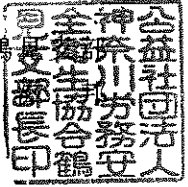 公益社団法人
神奈川労務安
全衛生協会鶴
見支部長印
邦